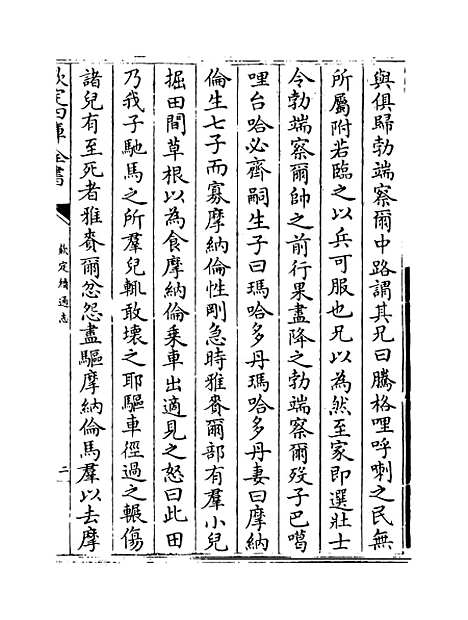 與俱歸勃端察爾中路謂其兄曰騰格哩呼喇之民無
所屬附若臨之以兵可服也兄以為然至家即選壯士
令勃端察爾帥之前行果盡降之勃端察爾歿子巴噶
哩台哈必齊嗣生子曰瑪哈多丹瑪哈多丹妻曰摩納
倫生七子而寡摩納倫性剛急時雅賚爾部有羣小兒
掘田間草根以為食摩納倫乗車出適見之怒曰此田
乃我子馳馬之所羣兒輒敢壞之耶驅車徑過之輾傷
諸兒有至死者雅賚爾忿怨盡驅摩納倫馬羣以去摩
欽定四庫全書
欽定續通志
二